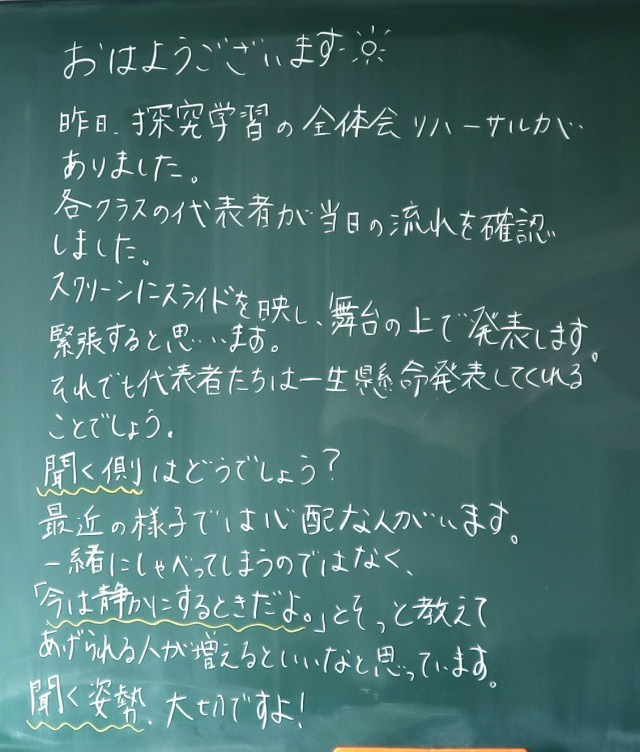 おはようございます☀
昨日、探究学習の全体会リハーサルが
ありました。
各クラスの代表者が当日の流れを確認
しました。
スクリーンにスライドを映し、舞台の上で発表します。
緊張すると思います。
それでも代表者たちは一生懸命発表してくれる
ことでしょう。
聞く側はどうでしょう?
最近の様子では心配な人がいます。
一緒にしゃべってしまうのではなく、
「今は静かにするときだよ。」とそっと教えて
あげられる人が増えるといいなと思っています。
聞く姿勢、大切ですよ!